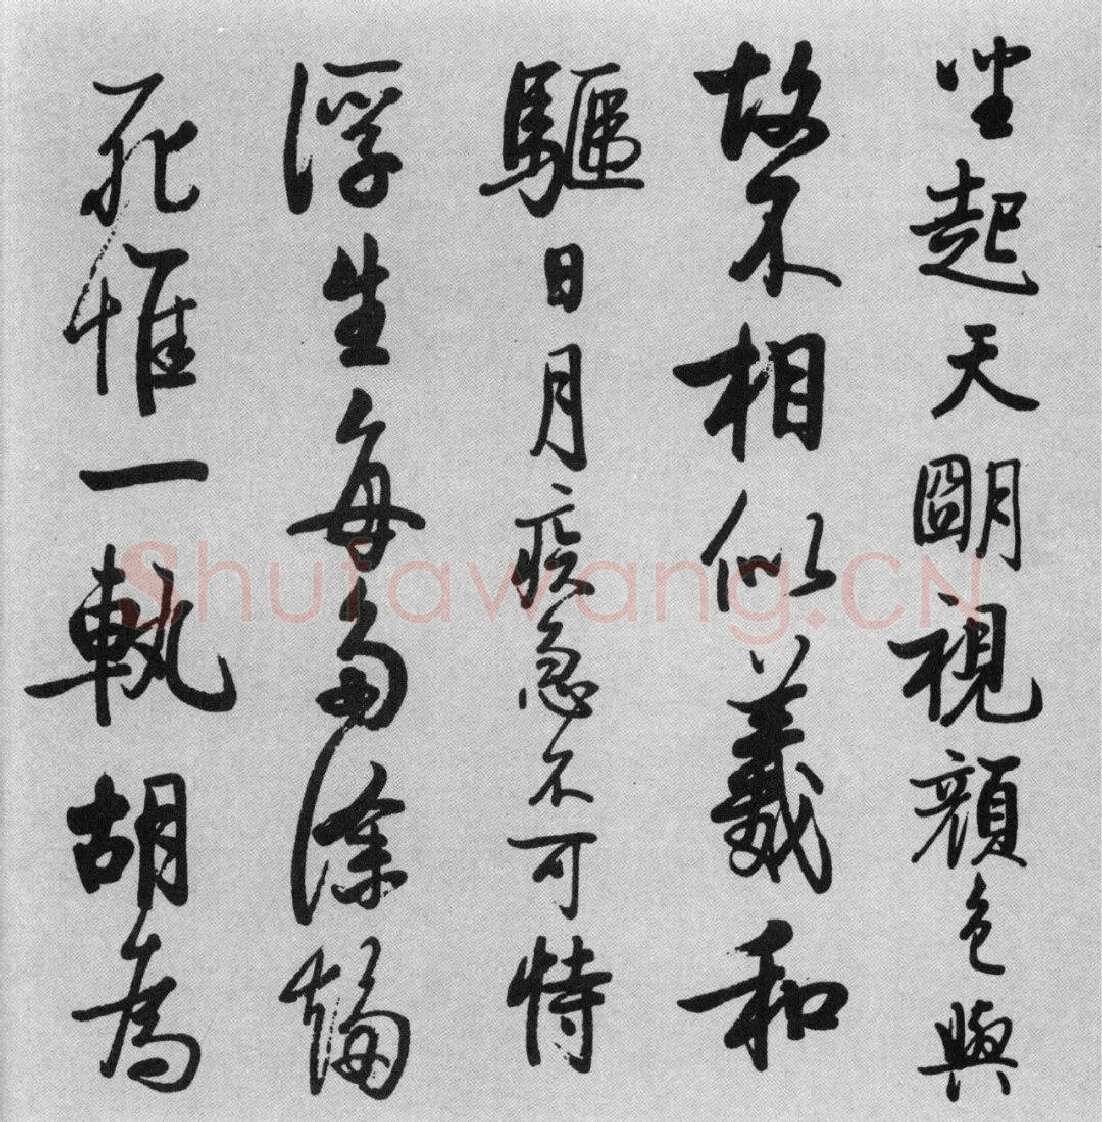 坐起天朙視顏色與
故不相似羲和
驅日月疾急不可恃
浮生每多涂趨
死惟一軌胡為
Shufawang.CN